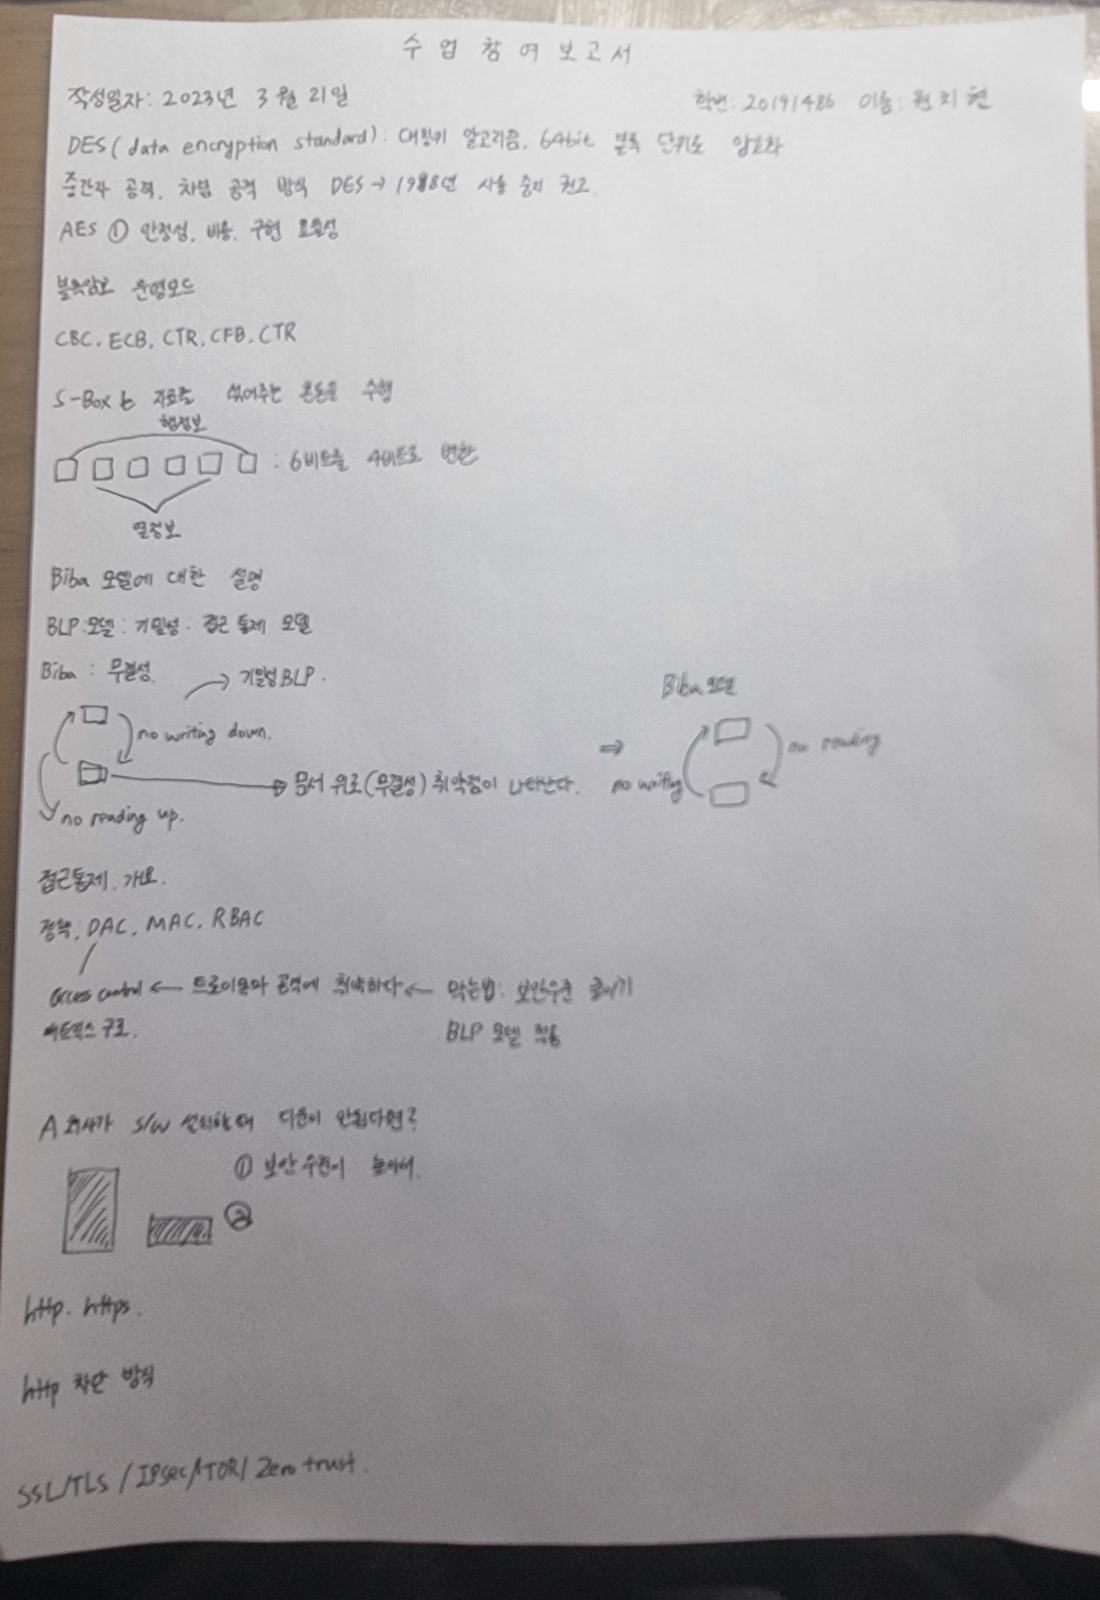 수업참여보고서
작성일자: 2023년 3월 21일 학번: 20191486 이름: 원지현
DES(data encryption standard): 대칭키 알고리즘, 64bit 블록 단위로 암호화
중간자 공격, 차분 공격 방식 DES → 1988년 사용 중지 권고.
AES ① 안정성, 비용, 구현 효율성
블록암호 운영모드
CBC, ECB, CTR, CFB, CTR
S-Box는 자료를 섞어주는 혼돈을 수행
행정보
: 6비트를 4비트로 변환
열정보
Biba 모델에 대한 설명
BLP 모델: 기밀성: 접근 통제 모델
Biba: 무결성. → 기밀성 BLP.
Biba 모델
no writing down.
⇒
no reading
문서 위로(무결성) 취약점이 나타난다.
no writing
no reading up.
접근통제, 개요.
정책, DAC, MAC, RBAC
access control ← 트로이목마 공격에 취약하다 ← 막는법: 보안수준 높이기
매트릭스 구조. BLP 모델 적용
A 회사가 S/W 설치할때 다운이 안된다면?
① 보안수준이 높아서.
②
http. https.
http 차단 방식
SSL/TLS / IPsec / TOR / Zero trust.